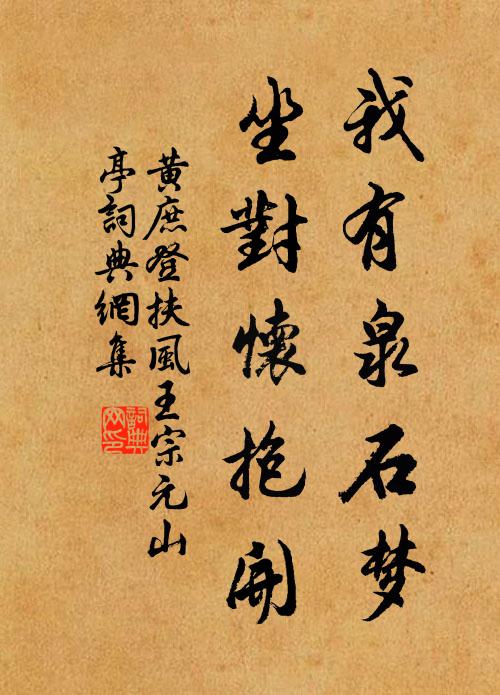 我有泉石梦
坐對懷抱開
黃庶登扶風王宗元山
亭詞典網集
詞典
网印